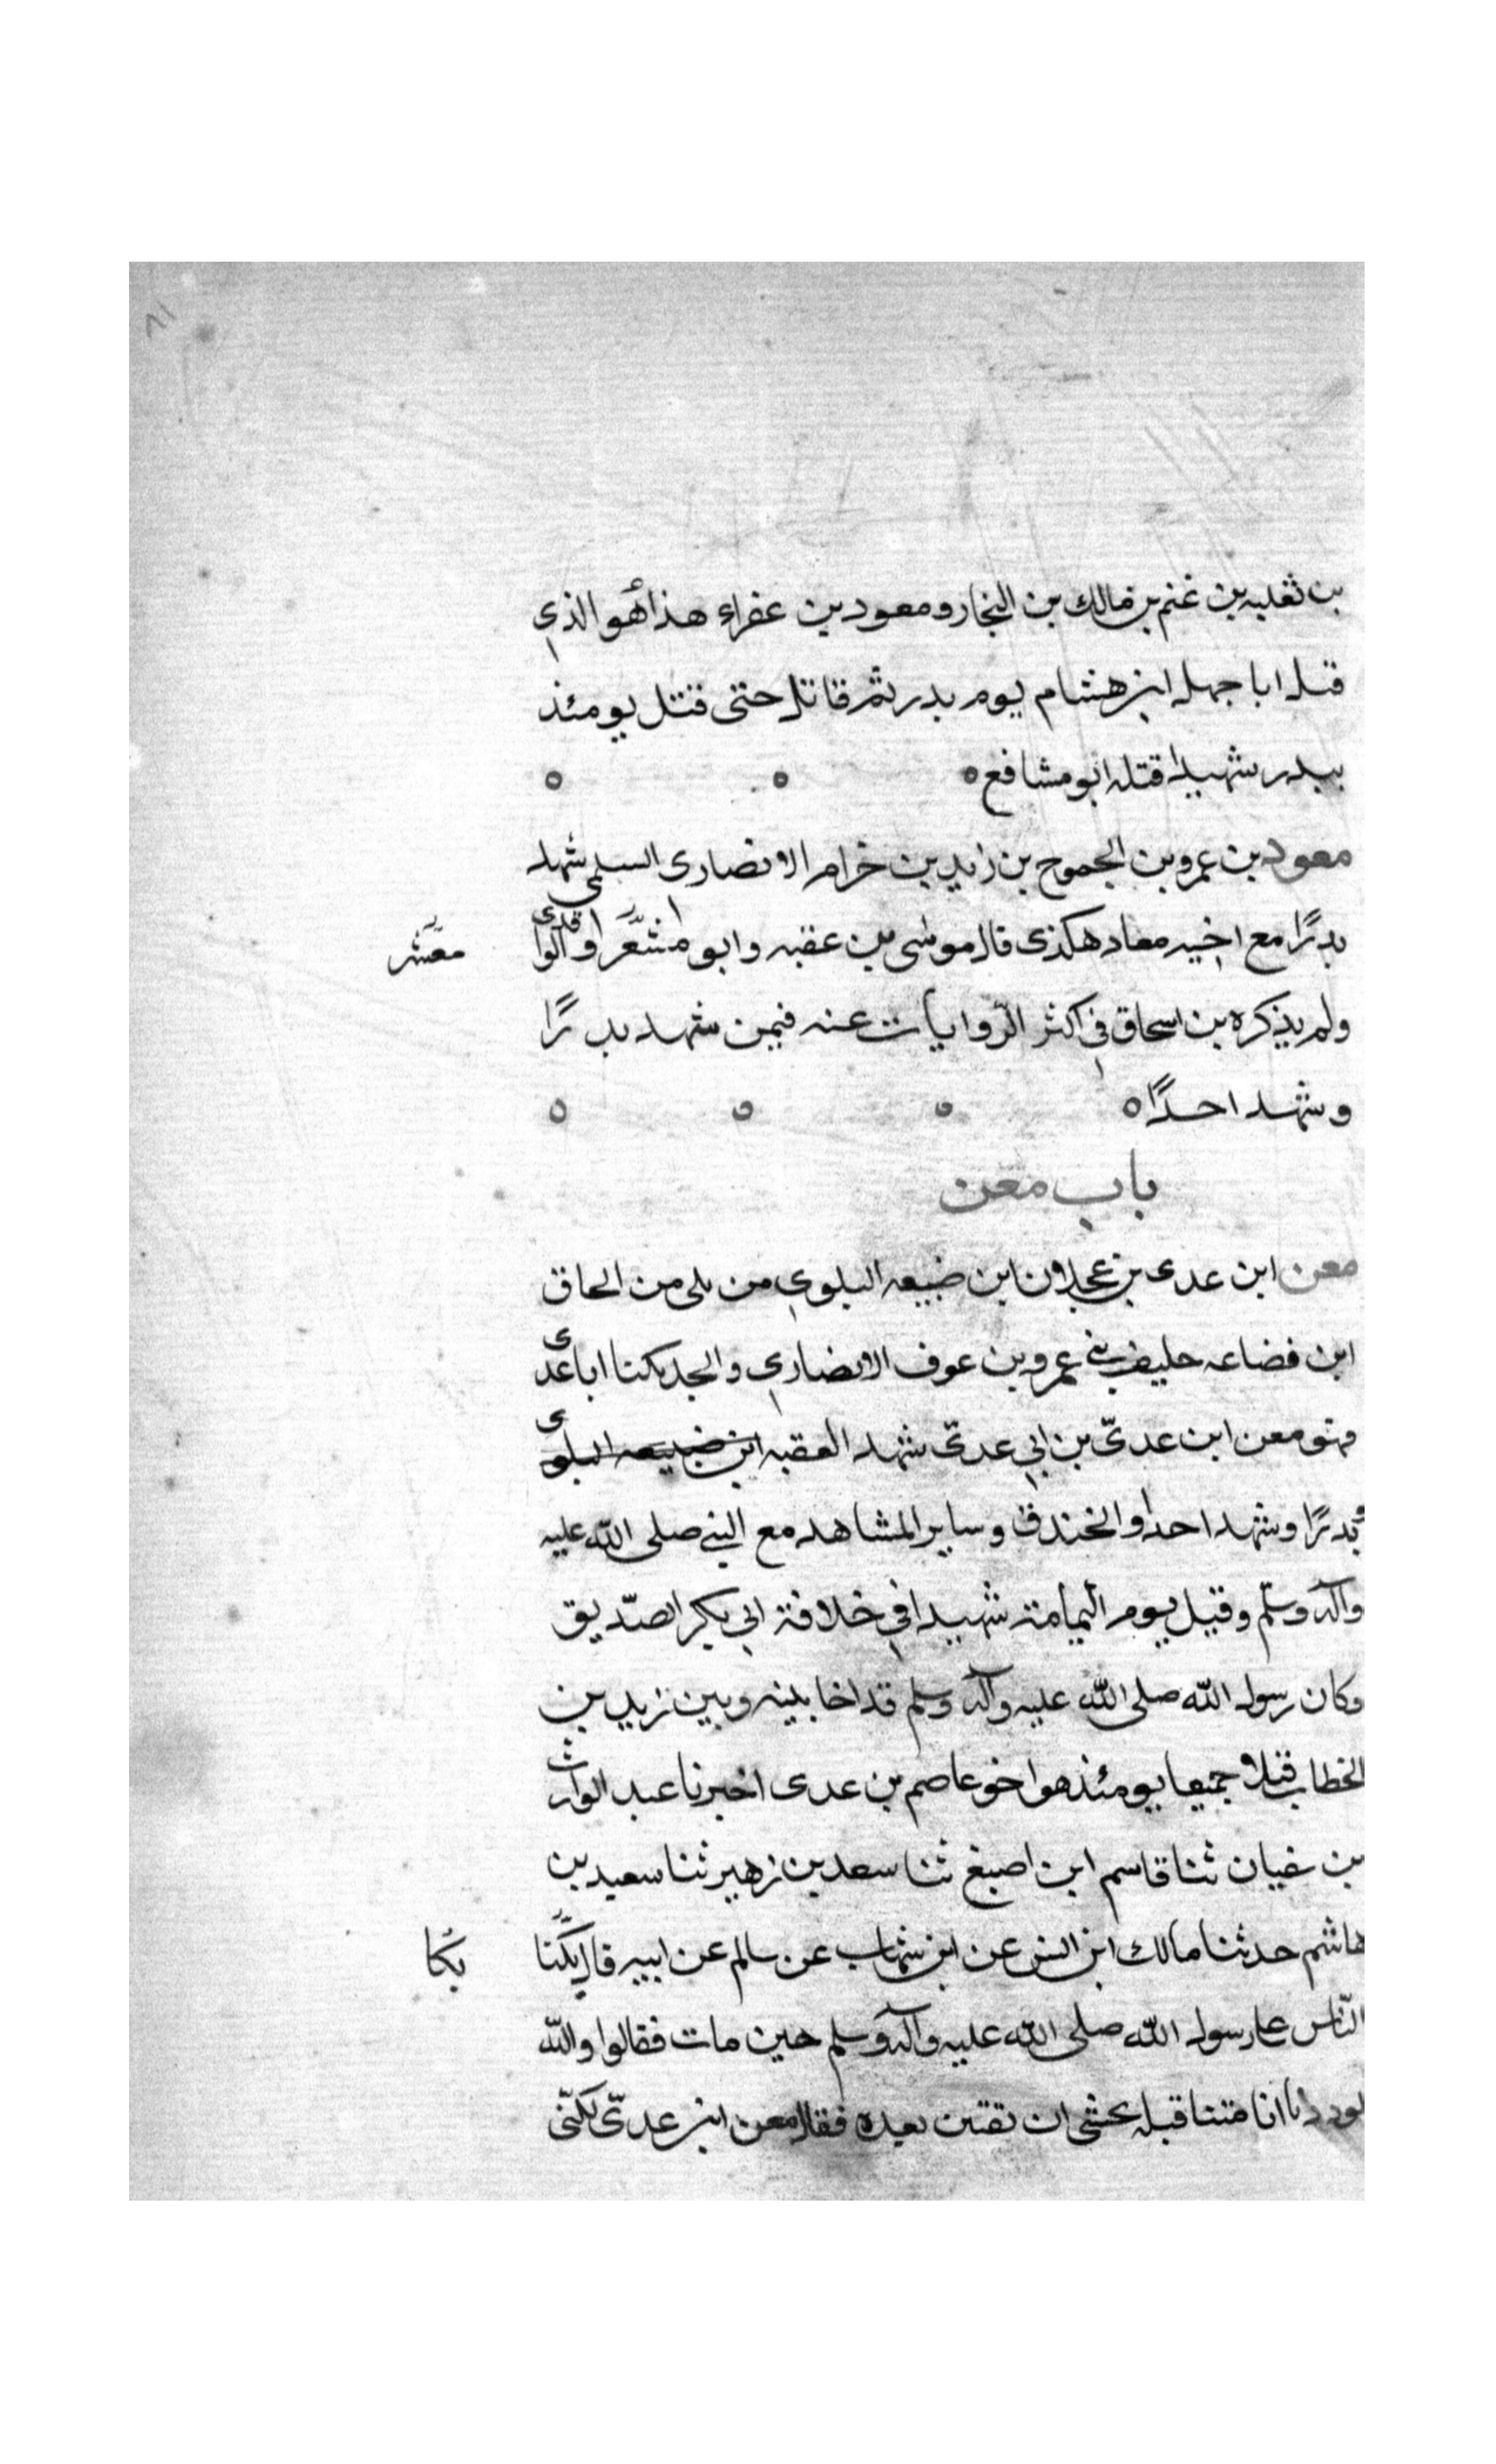 بن ثعلبه بن غنم بن مالك بن النجار ومعود بن عفراء هذا هو الذي
قتل ابا جهل ابن هشام يوم بدر ثم قاتل حتى قتل يومئذ
ببدر شهيدا قتله ابو مشافع ه
معود بن عمرو بن الجموح بن زايد بن خرام الانصارى السلمي شهد
بدرًا مع اخيه معاد هكذى قال موسى بن عقبه وابو مشعر والواقدى
معشر
ولم يذكره بن اسحاق في اكثر الروايات عنه فيمن شهد بدرًا
وشهد احدًا ه
باب معن
معن ابن عدى بن عجلان ابن ضبيعه البلوي من بلى من الحاق
ابن قضاعه حليف بني عمرو بن عوف الانصاري والجد يكنا ابا عدى
فهو معن ابن عدىّ بن ابي عدىّ شهد العقبه ابن ضبيعه البلوى
وبدرًا وشهد احدا والخندق وساير المشاهد مع النبي صلى الله عليه
وآله وسلّم وقيل يوم اليمامة شهيدا في خلافة ابي بكر الصّديق
وكان رسول الله صلى الله عليه وآله وسلم قد اخا بينه وبين زيد بن
الخطاب قتلا جميعا يومئذ هو اخو عاصم بن عدى اخبرنا عبد الوارث
بن سفيان ثنا قاسم ابن اصبغ ثنا سعد بن زهير ثنا سعيد بن
هاشم حدثنا مالك ابن انس عن ابن شهاب عن سالم عن ابيه قال بكّنا
بكا
النّاس على رسول الله صلى الله عليه وآله وسلم حين مات فقالوا والله
لوددنا انا متنا قبله نخشى ان نفتن بعده فقال معن ابن عدىّ لكنّى